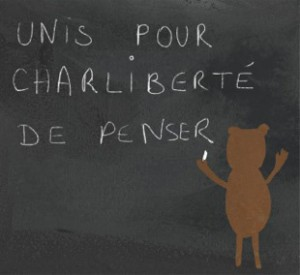 UNIS POUR
CHARLIBERTÉ
DE PENSER